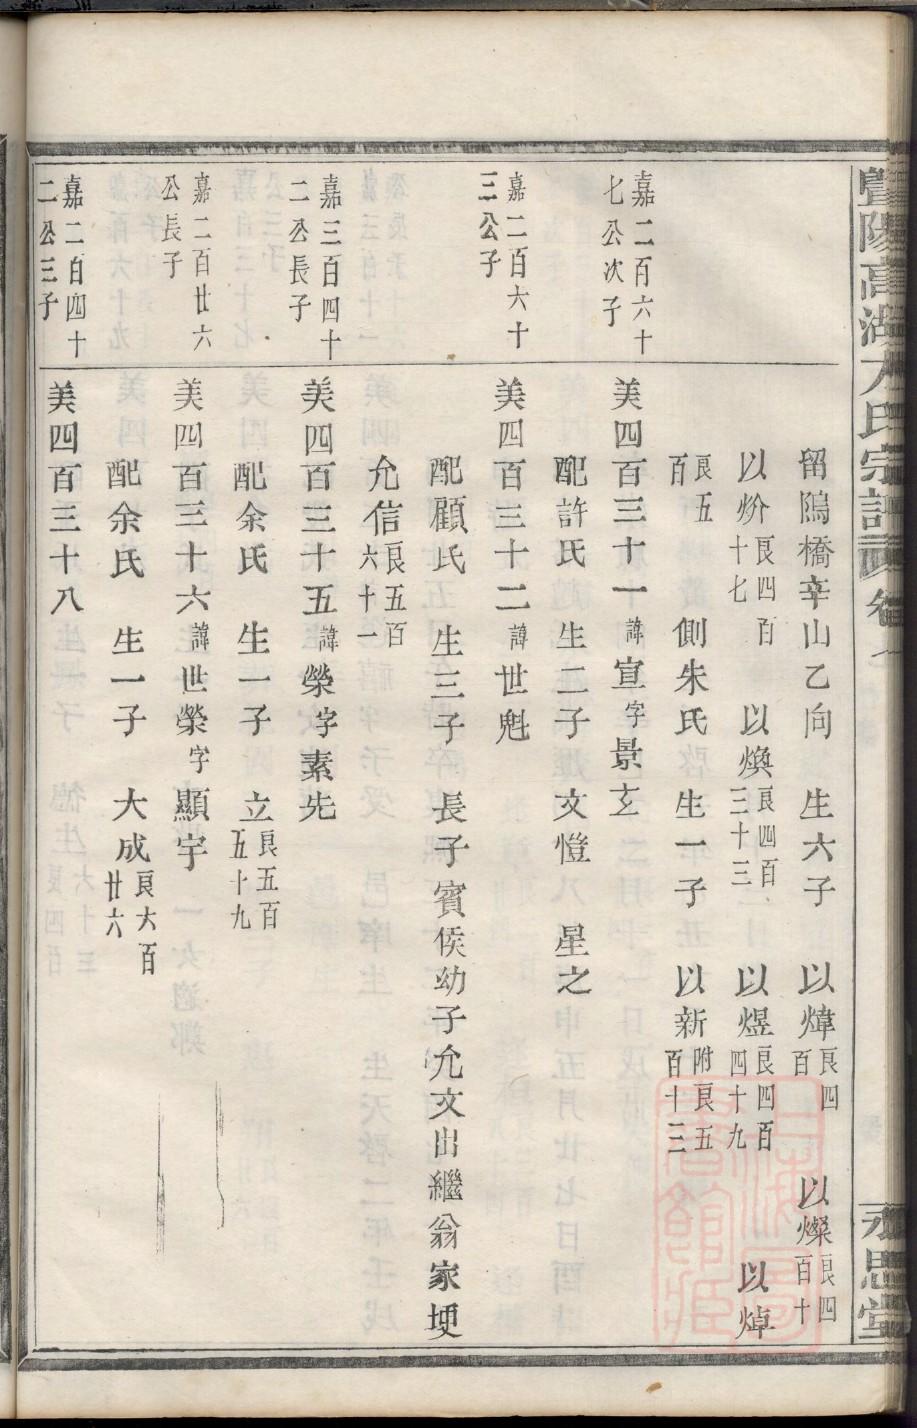 暨陽高湖方氏宗譜 卷七 永思堂
留隖橋辛山乙向 生六子 以煒 良四百 以燦 良四百十
以炌 良四百十七 以煥 良四百三十三 以煜 良四百四十九 以焯
良五百 側朱氏 生一子 以新 附良五百十三
嘉二百六十七公次子
美四百三十一 諱宣 字景玄
配許氏 生二子 文愷 星之
嘉二百六十三公子
美四百三十二 諱世魁
配顧氏 生三子 長子賓侯幼子允文出繼翁家埂
允信 良五百六十一
嘉三百四十二公長子
美四百三十五 諱榮 字素先
配余氏 生一子 立 良五百五十九
嘉二百廿六公長子
美四百三十六 諱世榮 字顯宇
配余氏 生一子 大成 良六百廿六
嘉二百四十二公三子
美四百三十八